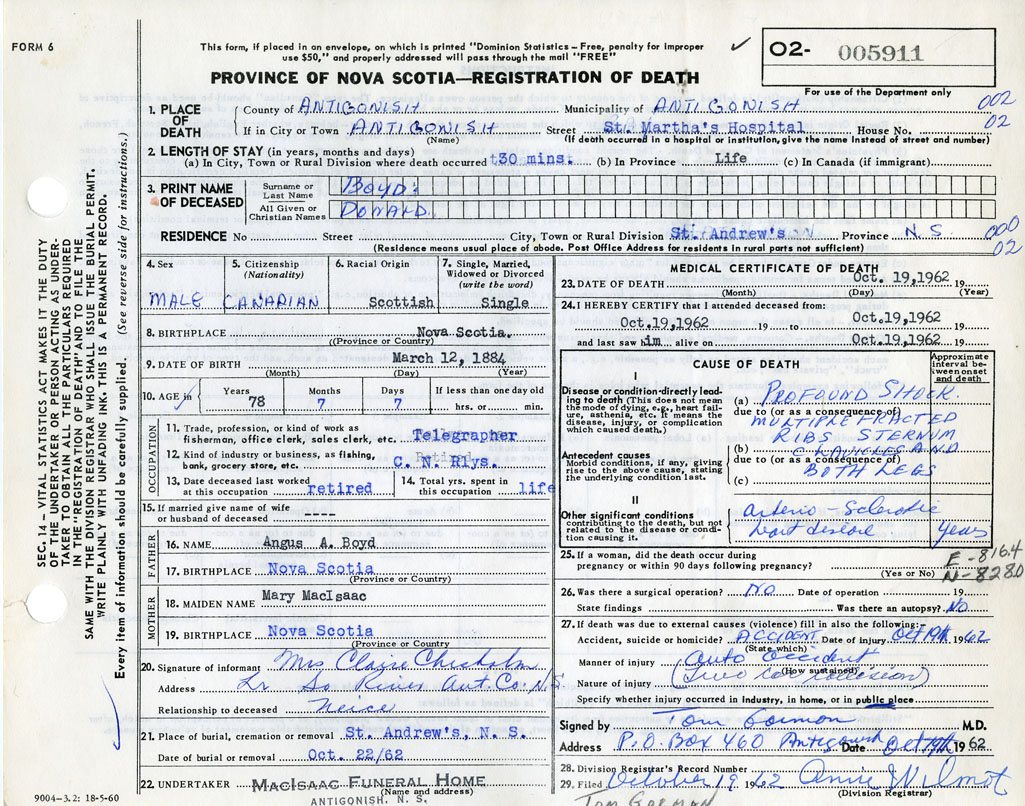 FORM 6
This form, if placed in an envelope, on which is printed "Dominion Statistics – Free, penalty for improper
use $50," and properly addressed will pass through the mail "FREE"
✓
O2- 005911
For use of the Department only
PROVINCE OF NOVA SCOTIA—REGISTRATION OF DEATH
002
02
1. PLACE OF DEATH County of ANTIGONISH Municipality of ANTIGONISH
If in City or Town ANTIGONISH Street St. Martha's Hospital House No.
(Name) (If death occurred in a hospital or institution, give the name instead of street and number)
2. LENGTH OF STAY (in years, months and days)
(a) In City, Town or Rural Division where death occurred t30 mins. (b) In Province Life (c) In Canada (if immigrant)
3. PRINT NAME OF DECEASED Surname or Last Name BOYD.
All Given or Christian Names DONALD.
RESIDENCE No Street City, Town or Rural Division St. Andrew's Province N.S
000
02
(Residence means usual place of abode. Post Office Address for residents in rural parts not sufficient)
4. Sex MALE
5. Citizenship (Nationality) CANADIAN
6. Racial Origin Scottish
7. Single, Married, Widowed or Divorced (write the word) Single
8. BIRTHPLACE Nova Scotia.
(Province or Country)
9. DATE OF BIRTH March 12, 1884
(Month) (Day) (Year)
10. AGE in Years 78 Months 7 Days 7 If less than one day old hrs. or min.
OCCUPATION
11. Trade, profession, or kind of work as
fisherman, office clerk, sales clerk, etc. Telegrapher
12. Kind of industry or business, as fishing,
bank, grocery store, etc. Retired C. N. Rlys.
13. Date deceased last worked
at this occupation retired
14. Total yrs. spent in
this occupation life
15. If married give name of wife
or husband of deceased ----
FATHER
16. NAME Angus A. Boyd
17. BIRTHPLACE Nova Scotia
(Province or Country)
MOTHER
18. MAIDEN NAME Mary MacIsaac
19. BIRTHPLACE Nova Scotia
(Province or Country)
20. Signature of informant Mrs Claire Chisholm
Address Lr So River Ant. Co. N.S
Relationship to deceased Neice
21. Place of burial, cremation or removal St. Andrew's, N. S.
Date of burial or removal Oct. 22/62
22. UNDERTAKER MACISAAC FUNERAL HOME
(Name and address)
ANTIGONISH, N. S.
MEDICAL CERTIFICATE OF DEATH
23. DATE OF DEATH Oct. 19,1962 19
(Month) (Day) (Year)
24. I HEREBY CERTIFY that I attended deceased from:
Oct.19,1962 19 to Oct.19,1962 19
and last saw him alive on Oct.19,1962 19
CAUSE OF DEATH
Approximate interval between onset and death
I
Disease or condition-directly leading to death (This does not mean the mode of dying, e.g., heart failure, asthenia, etc. It means the disease, injury, or complication which caused death.)
(a) PROFOUND SHOCK
due to (or as a consequence of)
MULTIPLE FRACTED
RIBS STERNUM
(b) CLAVICLES AND
due to (or as a consequence of)
BOTH LEGS
(c)
Antecedent causes
Morbid conditions, if any, giving rise to the above cause, stating the underlying condition last.
II
Other significant conditions
contributing to the death, but not related to the disease or condition causing it.
arterio-sclerotic
heart disease years
25. If a woman, did the death occur during
pregnancy or within 90 days following pregnancy?
(Yes or No)
E-816.4
N-828.0
26. Was there a surgical operation? NO Date of operation 19
State findings Was there an autopsy? No
27. If death was due to external causes (violence) fill in also the following:-
Accident, suicide or homicide? ACCIDENT Date of injury Oct 19th 1962
(State which)
Manner of injury Auto accident
(How sustained)
Nature of injury (Two car collision)
Specify whether injury occurred in industry, in home, or in public place
Signed by Tom Gorman M.D.
Address P.O. Box 460 Antigonish Date Oct 19th 1962
28. Division Registrar's Record Number
29. Filed October 19 1962 Anne Wilmot
(Division Registrar)
TOM GORMAN
SEC. 14 – VITAL STATISTICS ACT MAKES IT THE DUTY
OF THE UNDERTAKER OR PERSON ACTING AS UNDER-
TAKER TO OBTAIN ALL THE PARTICULARS REQUIRED
IN THE "REGISTRATION OF DEATH" AND TO FILE THE
SAME WITH THE DIVISION REGISTRAR WHO SHALL ISSUE THE BURIAL PERMIT.
WRITE PLAINLY WITH UNFADING INK. THIS IS A PERMANENT RECORD.
Every item of information should be carefully supplied. (See reverse side for instructions.)
9004-3.2: 18-5-60